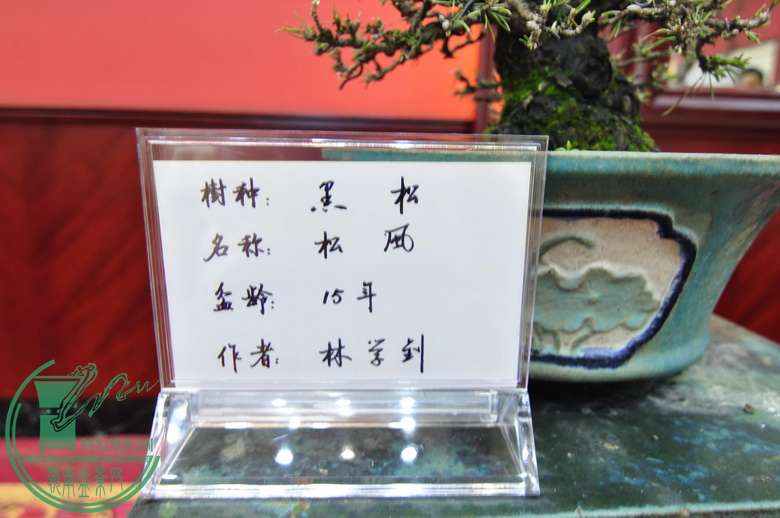 樹种: 黑 松
名称: 松 风
盆龄: 15年
作者: 林学钊